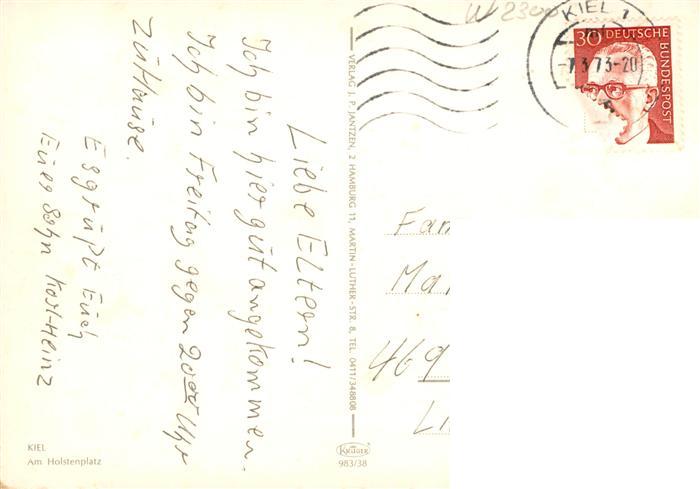 Liebe Eltern!
Ich bin hier gut angekommen.
Ich bin Freitag gegen 20 00 Uhr
zuHause.
Es grüßt Euch
Euer Sohn Karl-Heinz
KIEL
Am Holstenplatz
VERLAG J. P. JANTZEN, 2 HAMBURG 11, MARTIN-LUTHER-STR. 8, TEL. 0411/348808
KRÜGER
983/38
W 2300
KIEL 1
-7.3.73-20
30
DEUTSCHE
BUNDESPOST
Fam
Mar
469